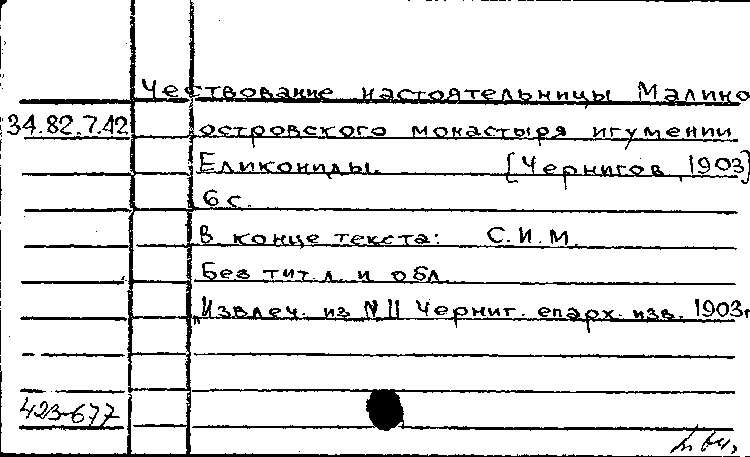 Чествование настоятельницы Малино
34.82.7.42 островского монастыря игумении
Еликониды. [Чернигов, 1903]
6 с.
В конце текста: С.И.М.
Без тит. л. и обл.
Извлеч. из № 11 Черниг. епарх. изв. 1903г
423-677